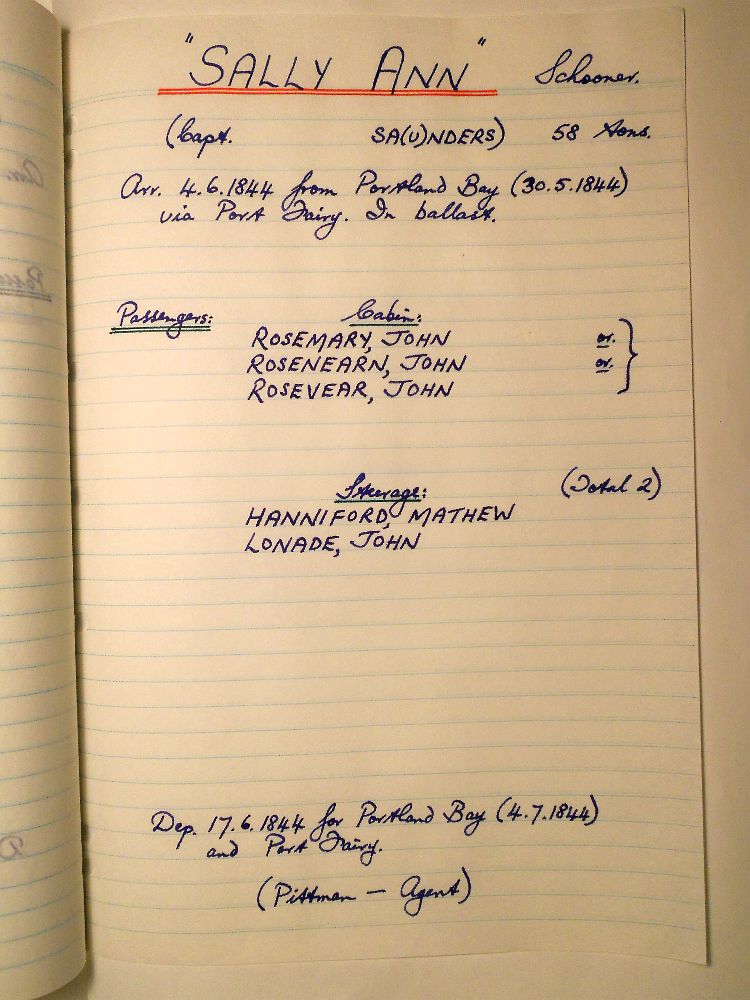 "SALLY ANN" Schooner.
(Capt. SA(U)NDERS) 58 tons.
Arr. 4.6.1844 from Portland Bay (30.5.1844)
via Port Fairy. In ballast.
Passengers: Cabin:
ROSEMARY, JOHN or.
ROSENEARN, JOHN or.
ROSEVEAR, JOHN
Steerage: (Total 2)
HANNIFORD, MATHEW
LONADE, JOHN
Dep. 17.6.1844 for Portland Bay (4.7.1844)
and Port Fairy.
(Pittman — Agent)